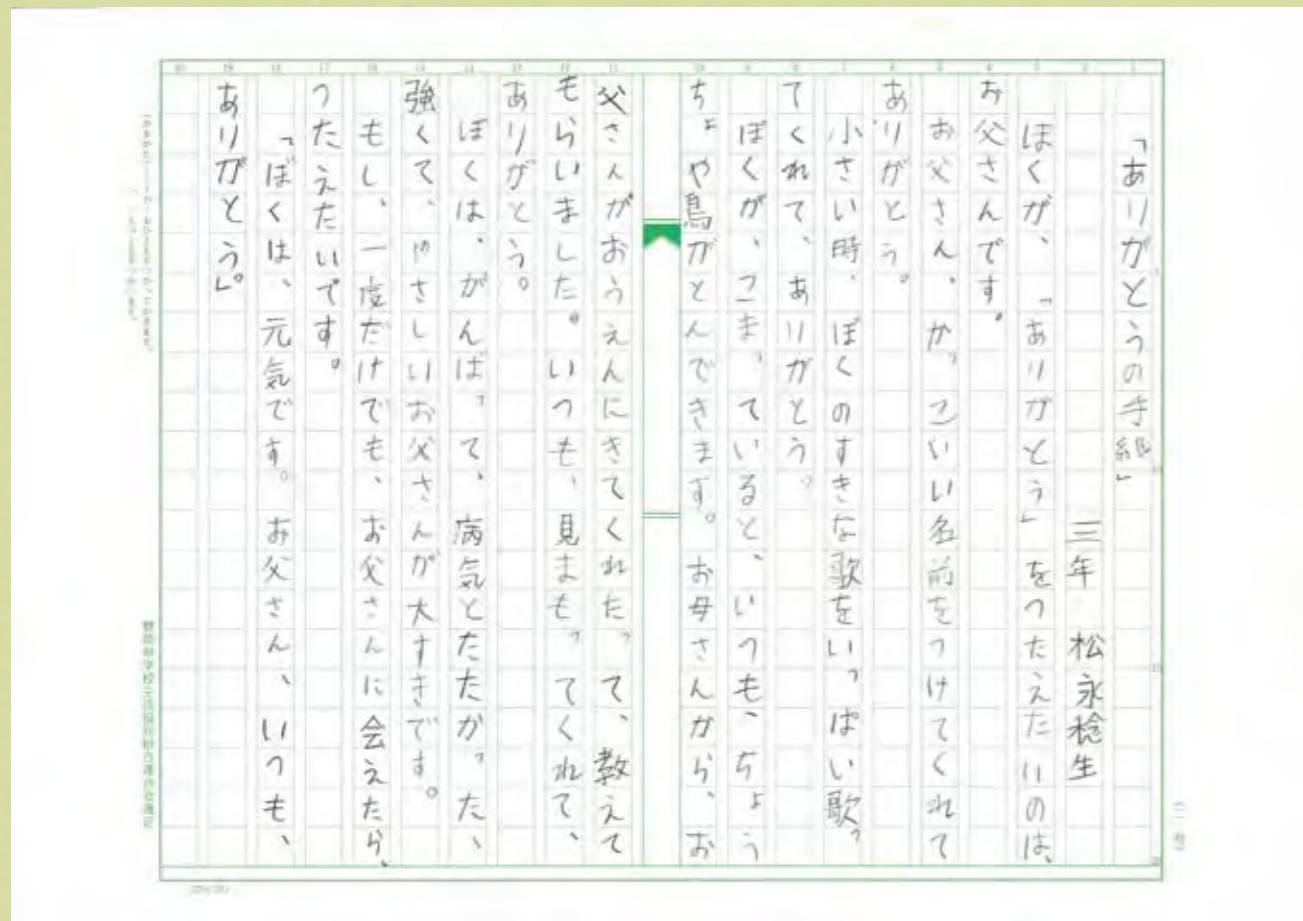 「ありがとうの手紙」
三年 松永稔生
ぼくが、「ありがとう」をつたえたいのは、
お父さんです。
お父さん、かっこいい名前をつけてくれて
ありがとう。
小さい時、ぼくのすきな歌をいっぱい歌っ
てくれて、ありがとう。
ぼくが、こまっていると、いつも、ちょう
ちょや鳥がとんできます。お母さんから、お
父さんがおうえんにきてくれたって、教えて
もらいました。いつも、見まもってくれて、
ありがとう。
ぼくは、がんばって、病気とたたかった、
強くて、やさしいお父さんが大すきです。
もし、一度だけでも、お父さんに会えたら、
つたえたいです。
「ぼくは、元気です。お父さん、いつも、
ありがとう。」